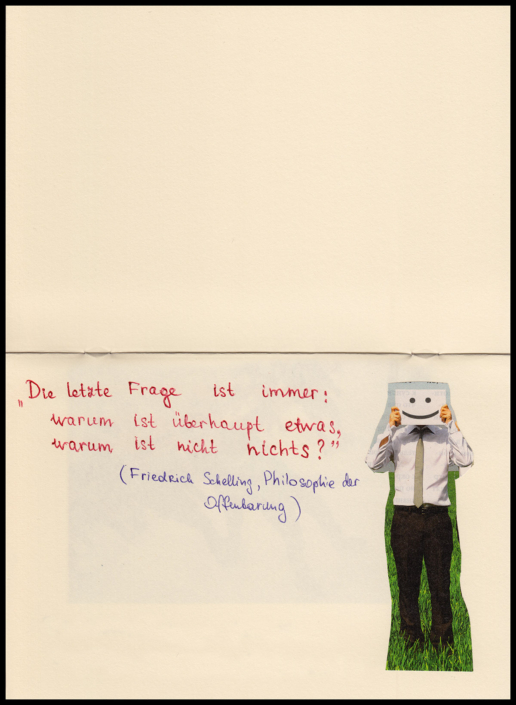 „Die letzte Frage ist immer:
warum ist überhaupt etwas,
warum ist nicht nichts?”
(Friedrich Schelling, Philosophie der
Offenbarung)